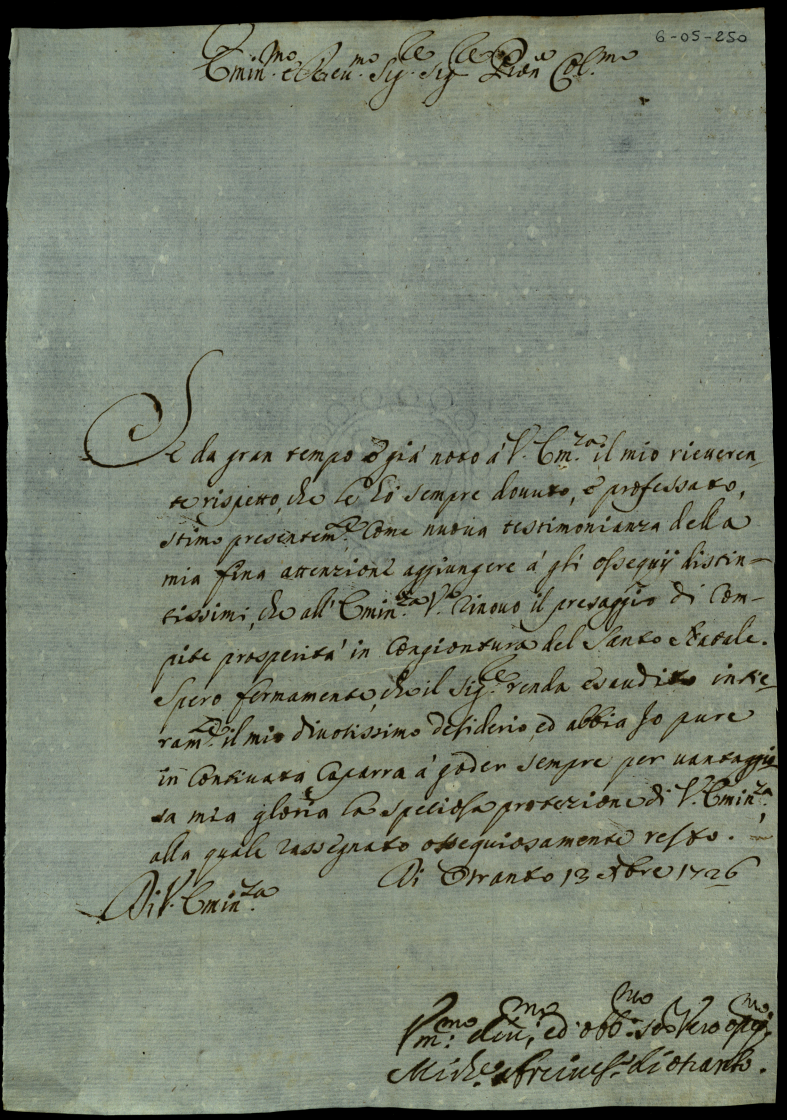 6-05-250
Emin.mo e Reu.mo Sig.re Sig.re Pron.e Col.mo
Se da gran tempo è già noto à V. Em.za il mio riueren-
te rispetto, che le hò sempre douuto, e professato,
stimo presentem.te Come nuoua testimonianza della
mia fina attenzione aggiungere à gli ossequij distin-
tissimi, che all' Emin.za V.ra rinouo il presaggio di Com-
pite prosperità in Congiontura del Santo Natale.
Spero fermamente, che il Sig.re renda esaudito intie-
ram.te il mio diuotissimo desiderio, ed abbia Io pure
in Continuata Caparra à goder sempre per uantaggio-
sa mia gloria la speciosa protezione di V. Emin.za,
alla quale rassegnato ossequiosamente resto.
Di Otranto 13 Xbre 1726
Di V. Emin.za
V.mo Diu.mo, ed obb.mo Ser. Vero
Mich.e Arciuesc.o di Otranto.